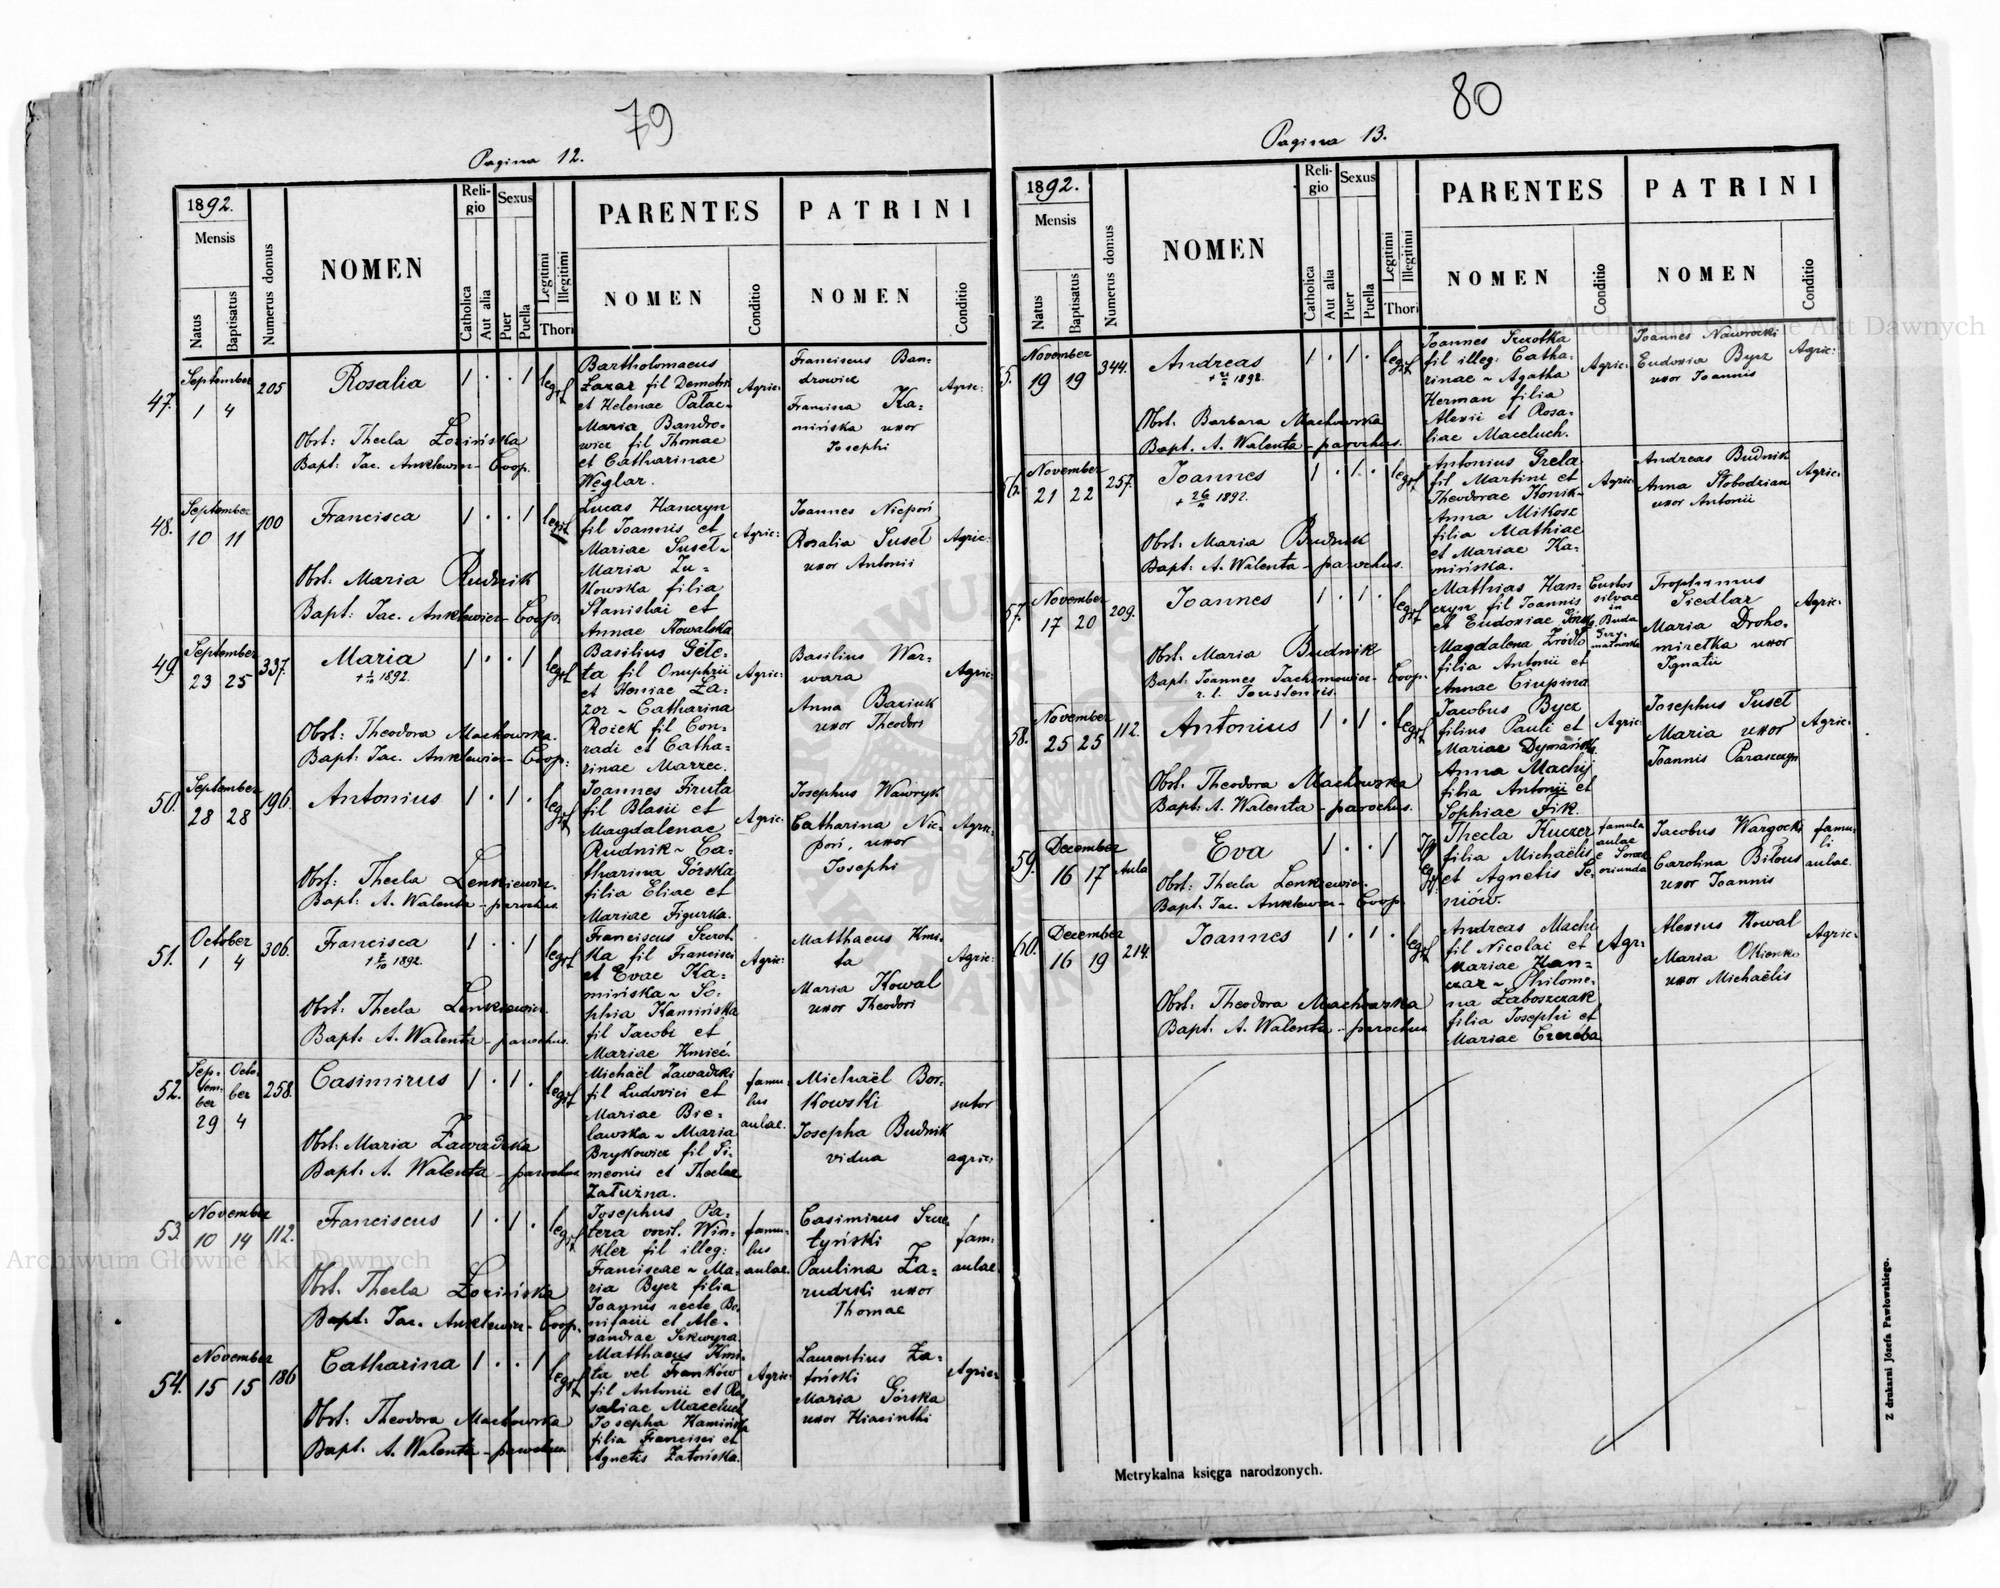 79
Pagina 12.
1892.
Mensis
Natus
Baptisatus
Numerus domus
NOMEN
Reli-
gio
Catholica
Aut alia
Sexus
Puer
Puella
Legitimi
Illegitimi
Thori
PARENTES
NOMEN
Conditio
PATRINI
NOMEN
Conditio
47.
September
1 4
205
Rosalia
1 . . 1
legit
Obst: Thecla Łozińska
Bapt: Jac. Anklewicz - Coop.
Bartholomaeus
Łazar fil Demetrii
et Helenae Pałac-
Maria Bandro-
wicz fil Thomae
et Catharinae
Węglar.
Agric:
Franciscus Ban-
drowicz
Francisca Ka-
mińska uxor
Josephi
Agric:
48.
September
10 11
100
Francisca
1 . . 1
legit
Obst: Maria Rudnik
Bapt: Jac. Anklewicz - Coop.
Lucas Hanczyn
fil Joannis et
Mariae Suseł-
Maria Żu-
kowska filia
Stanislai et
Annae Kowalska
Agric:
Joannes Niepoń
Rosalia Suseł
uxor Antonii
Agric:
49.
September
23 25
337.
Maria
+ 1/10 1892.
1 . . 1
legit
Obst: Theodora Machowska.
Bapt: Jac. Anklewicz - Coop:
Basilius Géle-
ta fil Onuphrii
et Xeniae Ła-
zor - Catharina
Rożek fil Con-
radi et Catha-
rinae Marzec.
Agric:
Basilius War-
wara
Anna Baziuk
uxor Theodori
Agric:
50.
September
28 28
196.
Antonius
1 . 1 .
legit
Obst: Thecla Lenkiewicz.
Bapt: A. Walenta - parochus.
Joannes Fruta
fil Blasii et
Magdalenae
Rudnik - Ca-
tharina Górska
filia Eliae et
Mariae Figurka.
Agric:
Josephus Wawryk
Catharina Nie-
poń, uxor
Josephi
Agric:
51.
October
1 4
306.
Francisca
+ 7/10 1892.
1 . . 1
legit
Obst: Thecla Lenkiewicz.
Bapt: A. Walenta - parochus.
Franciscus Szrot-
ka fil Francisci
et Evae Ka-
mińska - So-
phia Kamińska
fil Jacobi et
Mariae Kmieć.
Agric:
Matthaeus Kmi-
ta
Maria Kowal
uxor Theodori
Agric:
52.
Sep-
tem-
ber
29
Octo-
ber
4
258.
Casimirus
1 . 1 .
legit
Obst: Maria Zawadzka
Bapt: A. Walenta - parochus
Michaël Zawadzki
fil Ludovici et
Mariae Bie-
lawska - Maria
Brykowicz fil Si-
meonis et Theclae
Załużna.
famu-
lus
aulae.
Michaël Bor-
kowski
Josepha Budnik
vidua
sutor
agric:
53.
November
10 14
112.
Franciscus
1 . 1 .
legit
Obst: Thecla Łozińska
Bapt: Jac. Anklewicz - Coop.
Josephus Pa-
tera vocit. Win-
kler fil illeg:
Franciscae - Ma-
ria Bycz filia
Joannis recte Bo-
nifacii et Ale-
xandrae Sekwyra.
famu-
lus
aulae.
Casimirus Szcze-
tyński
Paulina Za-
rudzki uxor
Thomae
fam:
aulae.
54.
November
15 15
186
Catharina
1 . . 1
legit
Obst: Theodora Machowska
Bapt: A. Walenta - parochus
Matthaeus Kmi-
ta vel Franków
fil Antonii et Ro-
saliae Maceluch
Josepha Kamińska
filia Francisci et
Agnetis Zatońska.
Agric:
Laurentius Za-
toński
Maria Górska
uxor Hiacinthi
Agric:
80
Pagina 13.
1892.
Mensis
Natus
Baptisatus
Numerus domus
NOMEN
Reli-
gio
Catholica
Aut alia
Sexus
Puer
Puella
Legitimi
Illegitimi
Thori
PARENTES
NOMEN
Conditio
PATRINI
NOMEN
Conditio
55.
November
19 19
344.
Andreas
1 . 1 .
legit
Obst: Barbara Machowska
Bapt: A. Walenta - parochus.
Joannes Szrotka
fil illeg: Catha-
rinae - Agatha
Herman filia
Alexii et Rosa-
liae Maceluch.
Agric:
Joannes Nawrocki
Eudoxia Bycz
uxor Joannis
Agric:
56.
November
21 22
257.
Joannes
+ 26/11 1892.
1 . 1 .
legit
Obst: Maria Budnik
Bapt: A. Walenta - parochus.
Antonius Grela
fil Martini et
Theodorae Konik-
Anna Mikosz
filia Mathiae
et Mariae Ka-
mińska.
Agric:
Andreas Budnik
Anna Słobodzian
uxor Antonii
Agric:
57.
November
17 20
209.
Joannes
1 . 1 .
legit
Obst: Maria Budnik
Bapt: Joannes Jachimowicz - Coop.
r. l. Toustensis.
Mathias Han-
czyn fil Joannis
et Eudoxiae
Magdalena Źródło
filia Antonii et
Annae Ciupina
Custos
silvae
in
Buda
Grzy-
małowska
Trophimus
Siedlar
Maria Droho-
miretka uxor
Ignatii
Agric:
58.
November
25 25
112.
Antonius
1 . 1 .
legit
Obst: Theodora Machowska
Bapt: A. Walenta - parochus.
Jacobus Bycz
filius Pauli et
Mariae Dymańska
Anna Machij
filia Antonii et
Sophiae Fik.
Agric:
Josephus Suseł
Maria uxor
Joannis Paraszczyn
Agric:
59.
December
16 17
Aula
Eva
1 . . 1
Obst: Thecla Lenkiewicz.
Bapt: Jac. Anklewicz - Coop.
Thecla Kuczer
filia Michaëlis
et Agnetis Se-
niów.
famula
aulae
e Soroka
oriunda
Jacobus Wargocki
Carolina Biłous
uxor Joannis
famu-
li
aulae.
60.
December
16 19
214.
Joannes
1 . 1 .
legit
Obst: Theodora Machowska
Bapt: A. Walenta - parochus
Andreas Machi
fil Nicolai et
Mariae Han-
czar - Philome-
na Łaboszczak
filia Josephi et
Mariae Czereba
Agr:
Alexius Kowal
Maria Okienko
uxor Michaëlis
Agric:
Metrykalna księga narodzonych.
Z drukarni Józefa Pawłowskiego.
Archiwum Główne Akt Dawnych
Archiwum Główne Akt Dawnych